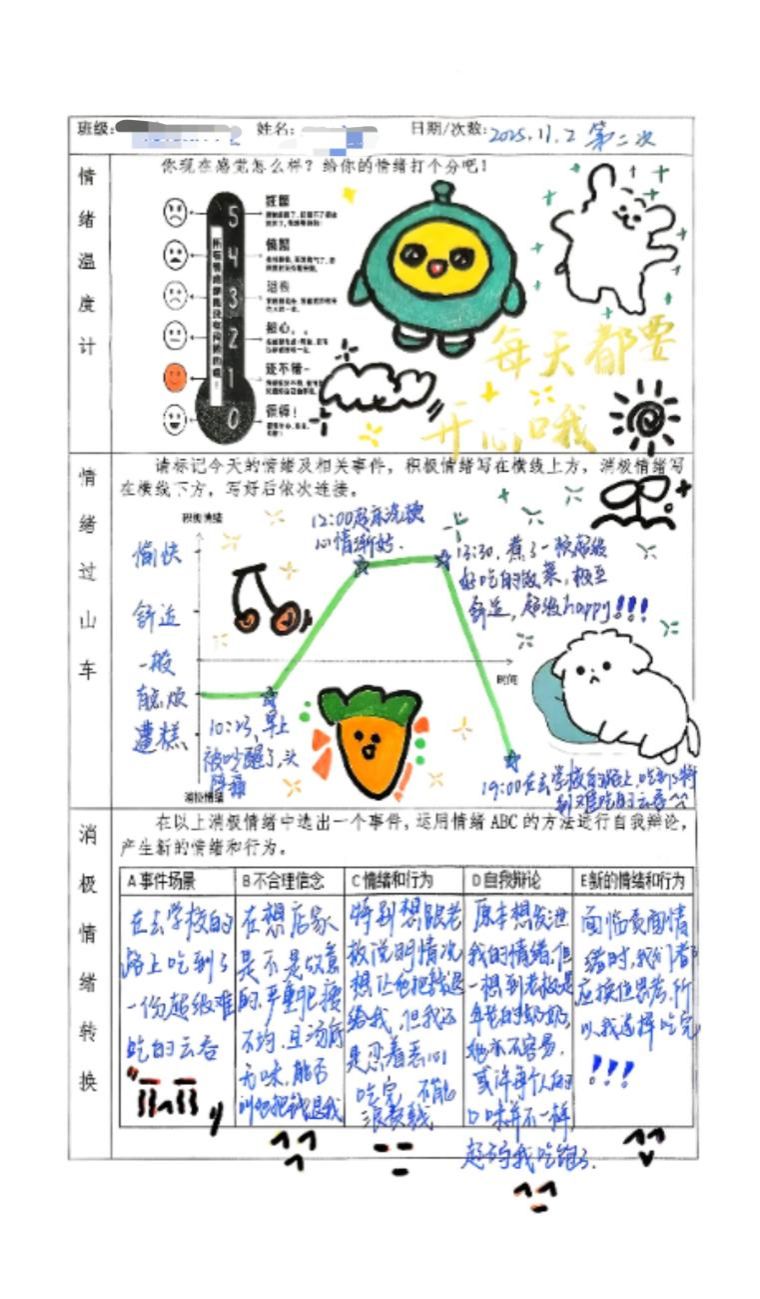 班级:
姓名:
日期/次数: 2025.11.2 第二次
情绪温度计
你现在感觉怎么样？给你的情绪打个分吧！
5 狂怒
4 愤怒
3
2 担心。
1 还不错~
0 很棒！
每天都要
开心哦
情绪过山车
请标记今天的情绪及相关事件，积极情绪写在横线上方，消极情绪写
在横线下方，写好后依次连接。
积极情绪
愉快
舒适
一般
有点烦
遭糕
消极情绪
时间
12:00起床洗漱
心情渐好.
13:30, 煮了一顿超级
好吃的饭菜, 极至
舒适, 超级happy!!!
10:23, 早上
被吵醒了, 头
19:00在去学校的路上, 吃到了特
别难吃的云吞
消极情绪转换
在以上消极情绪中选出一个事件，运用情绪ABC的方法进行自我辩论，
产生新的情绪和行为。
A事件场景
在去学校的
路上吃到了
一份超级难
吃的云吞
B不合理信念
在想店家
是不是故意
的, 严重肥瘦
不均, 且汤底
无味, 能否
叫他把钱退我
C情绪和行为
特别想跟老
板说明情况
想让他把钱退
给我, 但我还
是忍着恶心
吃完, 不能
浪费钱
D自我辩论
原本想发泄
我的情绪, 但
一想到老板是
年老的奶奶,
她亦不容易,
或许每个人的
口味并不一样,
起码我吃饱了.
E新的情绪和行为
面临负面情
绪时, 我们都
应换位思考, 所
以我选择吃完
!!!